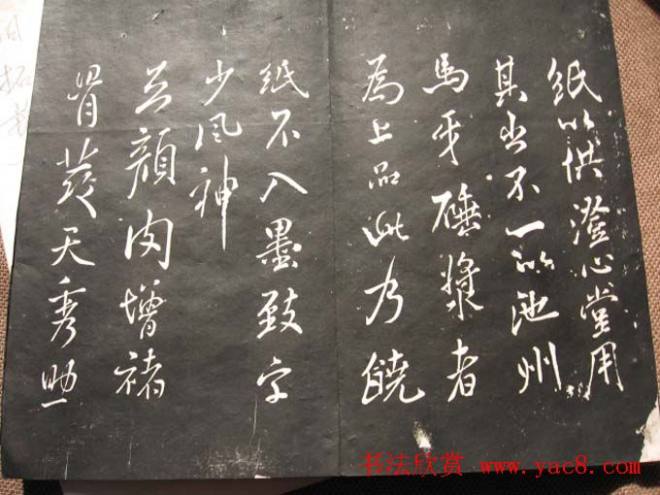 紙以供澄心堂用
其出不一以池州
馬牙硾漿者
為上品此乃饒
紙不入墨致字
少風神
顔肉增褚
骨天秀助
书法欣赏 www.yac8.com